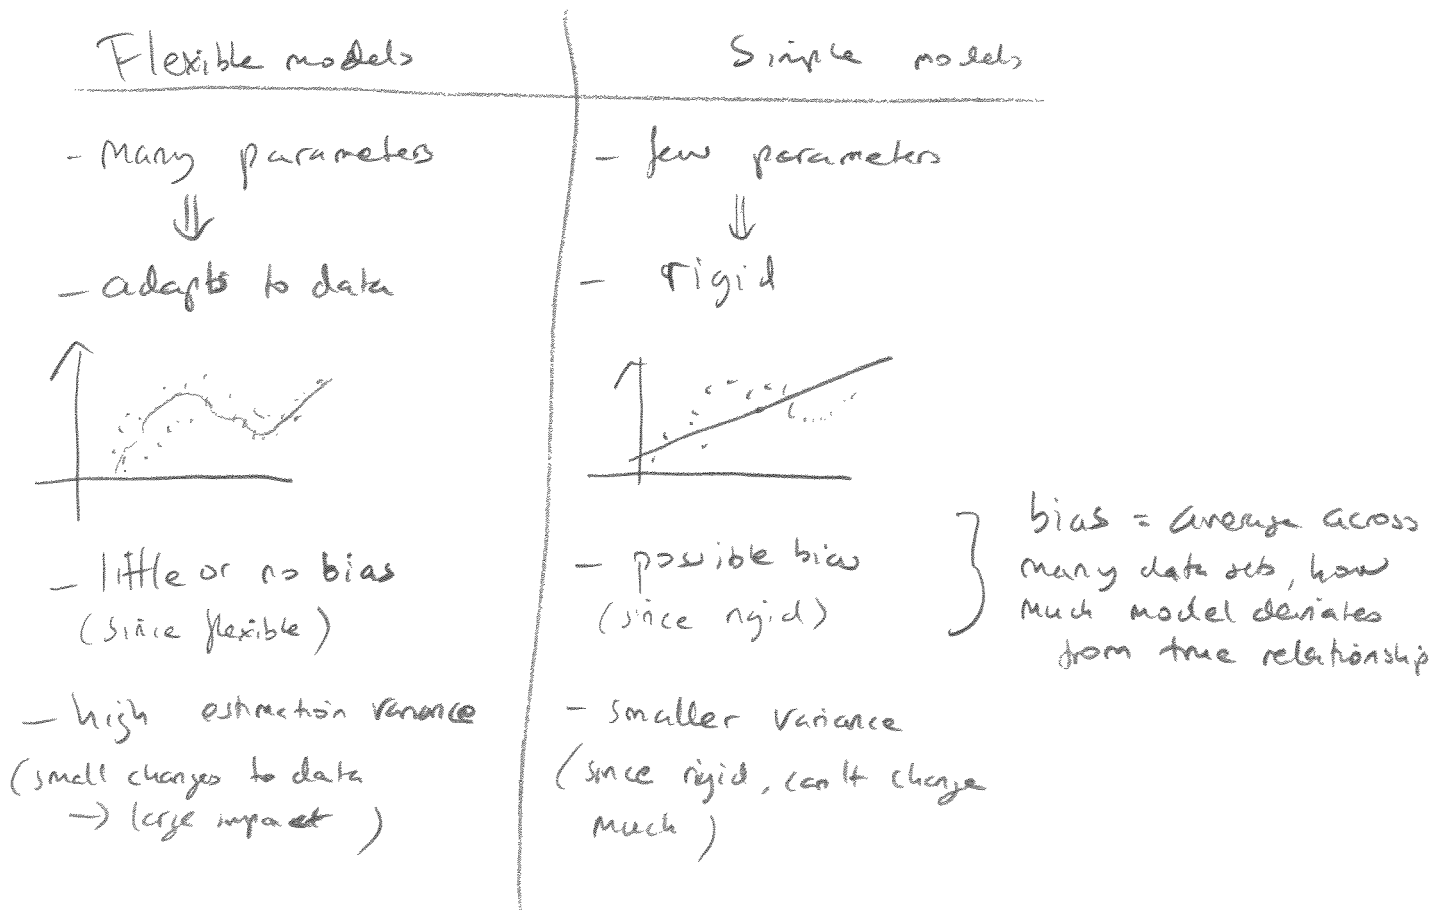 Flexible models
- Many parameters
⇓
- adapts to data
- little or no bias
(since flexible)
- high estimation variance
(small changes to data
→ large impact)
Simple models
- few parameters
⇓
- rigid
- possible bias
(since rigid)
- smaller variance
(since rigid, can't change
much)
bias = average across
many data sets, how
much model deviates
from true relationship